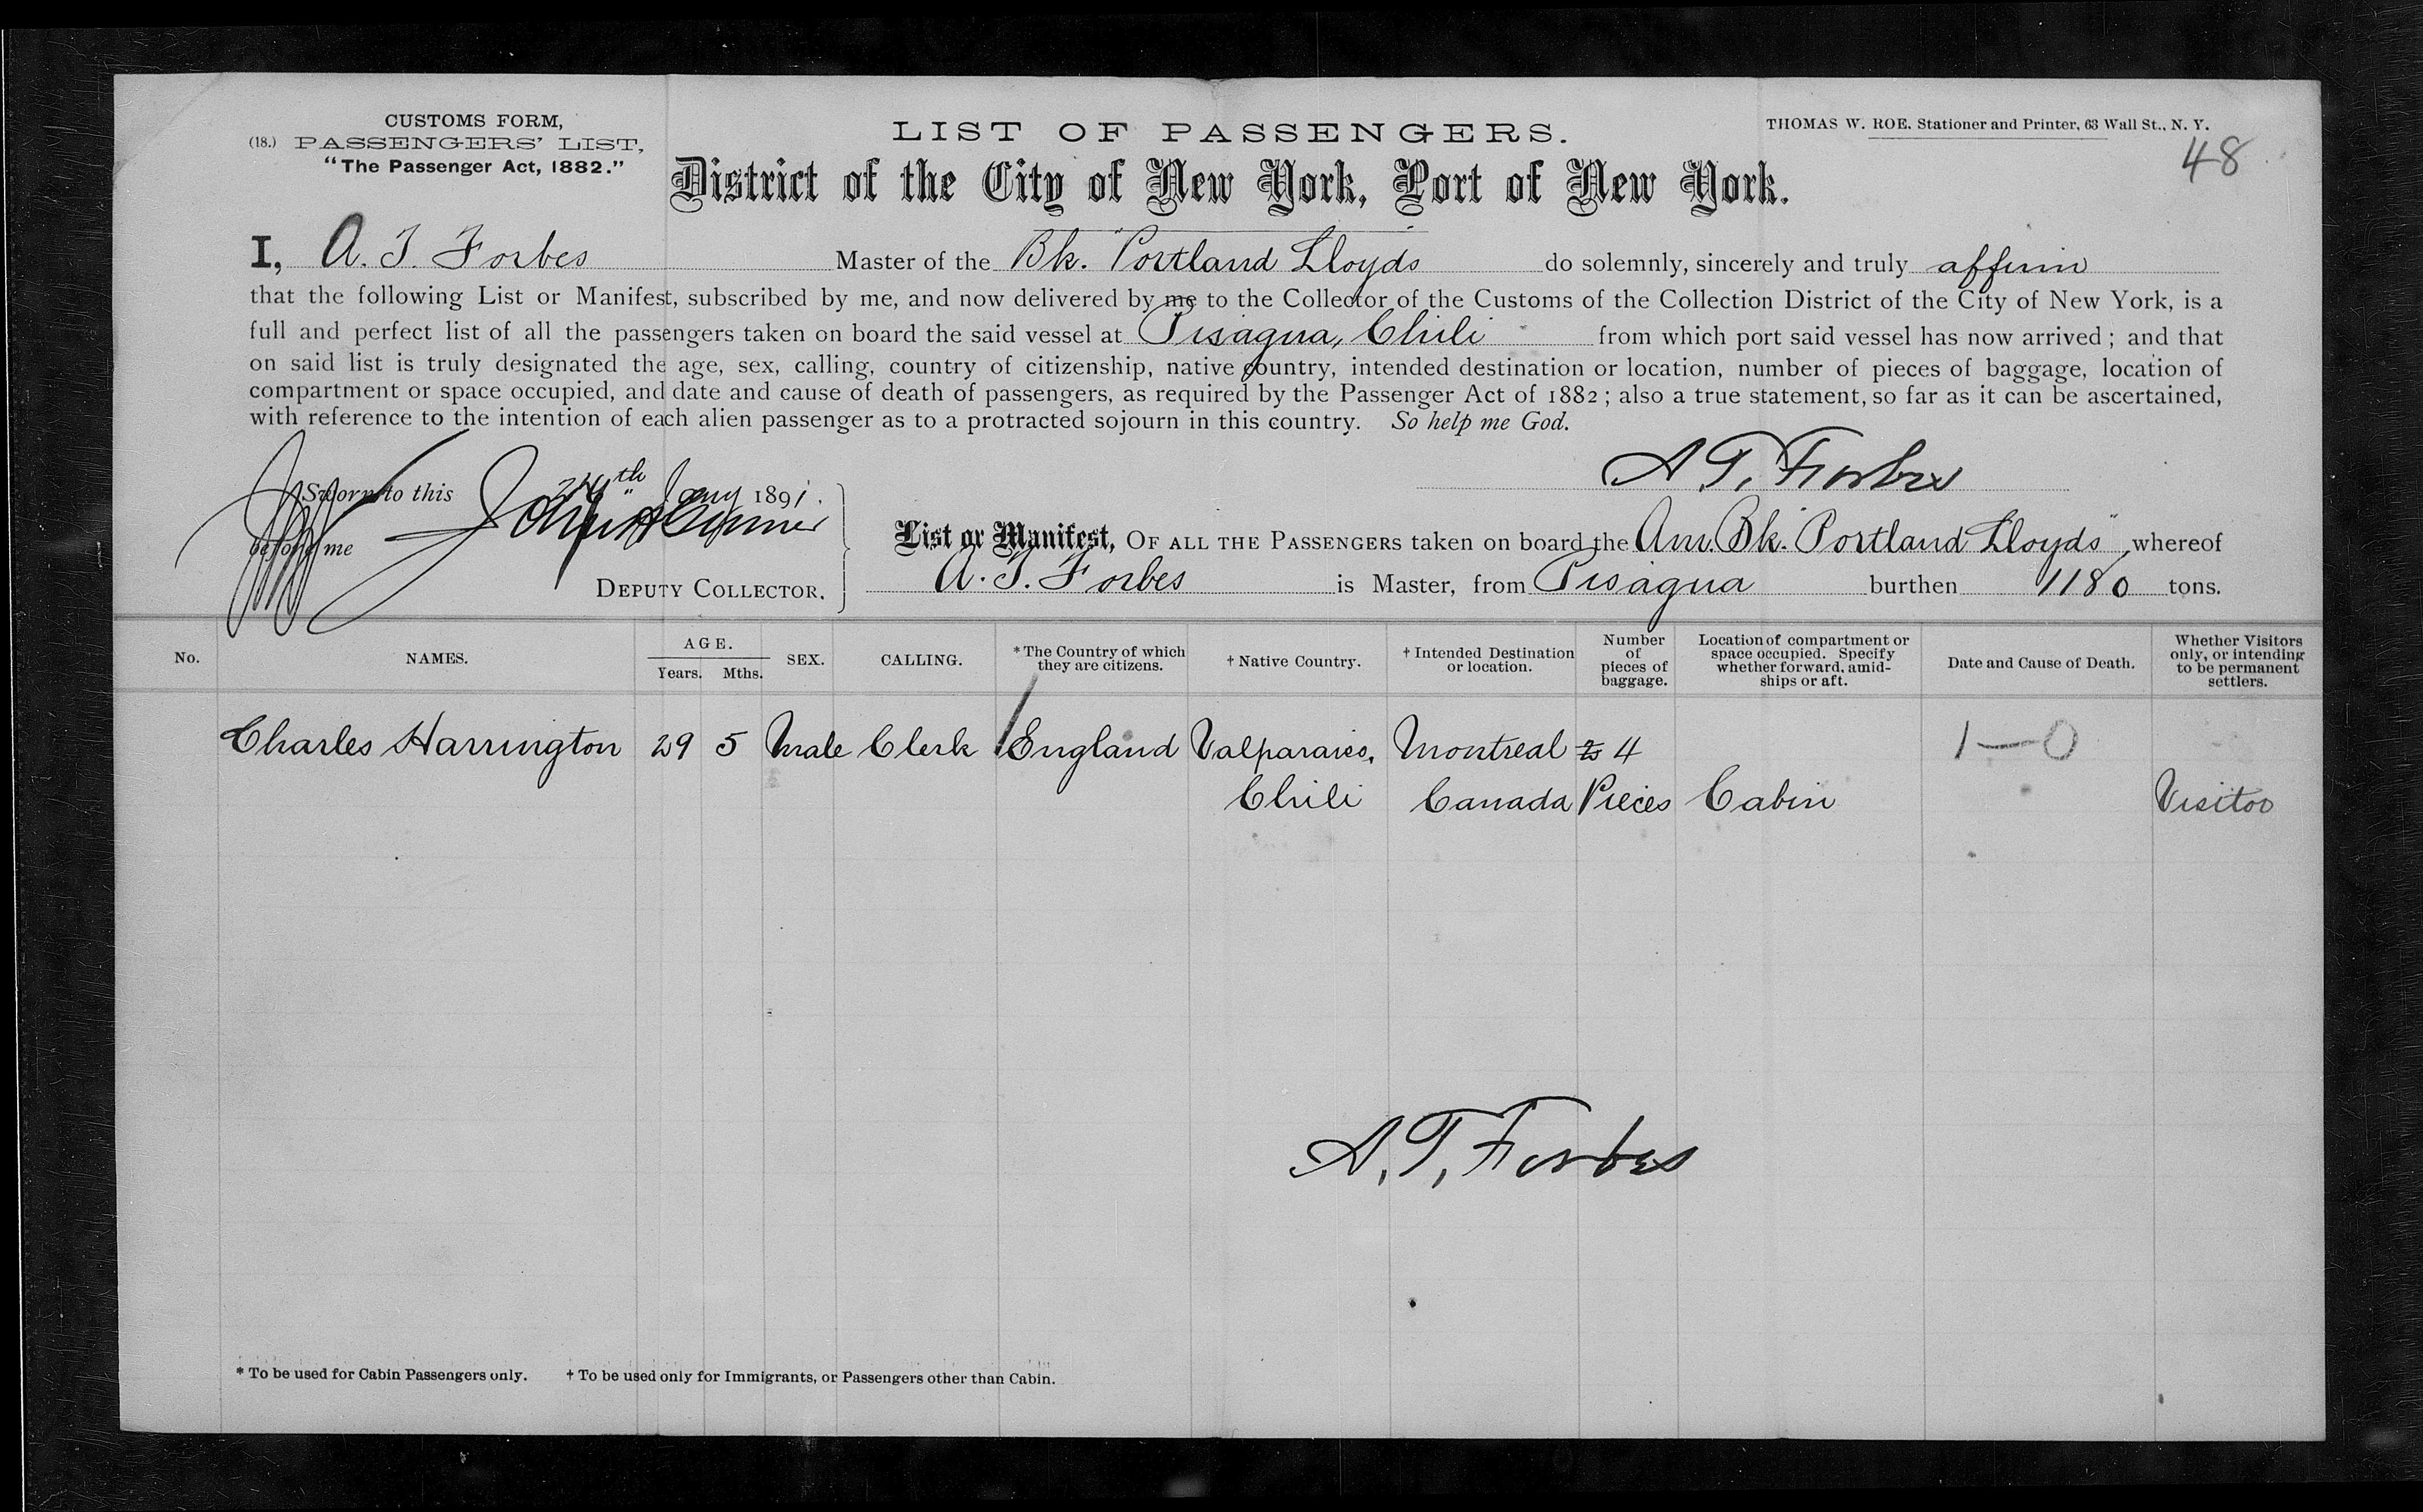 CUSTOMS FORM,
(18.) PASSENGERS' LIST,
"The Passenger Act, 1882."
LIST OF PASSENGERS.
THOMAS W. ROE. Stationer and Printer, 63 Wall St., N. Y.
48
District of the City of New York, Port of New York.
I, A. T. Forbes Master of the Bk. "Portland Lloyds" do solemnly, sincerely and truly affirm
that the following List or Manifest, subscribed by me, and now delivered by me to the Collector of the Customs of the Collection District of the City of New York, is a
full and perfect list of all the passengers taken on board the said vessel at Pisagua, Chili from which port said vessel has now arrived; and that
on said list is truly designated the age, sex, calling, country of citizenship, native country, intended destination or location, number of pieces of baggage, location of
compartment or space occupied, and date and cause of death of passengers, as required by the Passenger Act of 1882; also a true statement, so far as it can be ascertained,
with reference to the intention of each alien passenger as to a protracted sojourn in this country. So help me God.
A. T. Forbes
Sworn to this 24th Jany 1891.
before me
DEPUTY COLLECTOR.
List or Manifest, OF ALL THE PASSENGERS taken on board the Am. Bk. "Portland Lloyds" whereof
A. T. Forbes is Master, from Pisagua burthen 1180 tons.
No. NAMES. AGE. Years. Mths. SEX. CALLING. * The Country of which they are citizens. † Native Country. † Intended Destination or location. Number of pieces of baggage. Location of compartment or space occupied. Specify whether forward, amid-ships or aft. Date and Cause of Death. Whether Visitors only, or intending to be permanent settlers.
Charles Harrington 29 5 Male Clerk England Valparaiso, Montreal 4 1—0
Chili Canada Pieces Cabin Visitor
A. T. Forbes
* To be used for Cabin Passengers only. † To be used only for Immigrants, or Passengers other than Cabin.